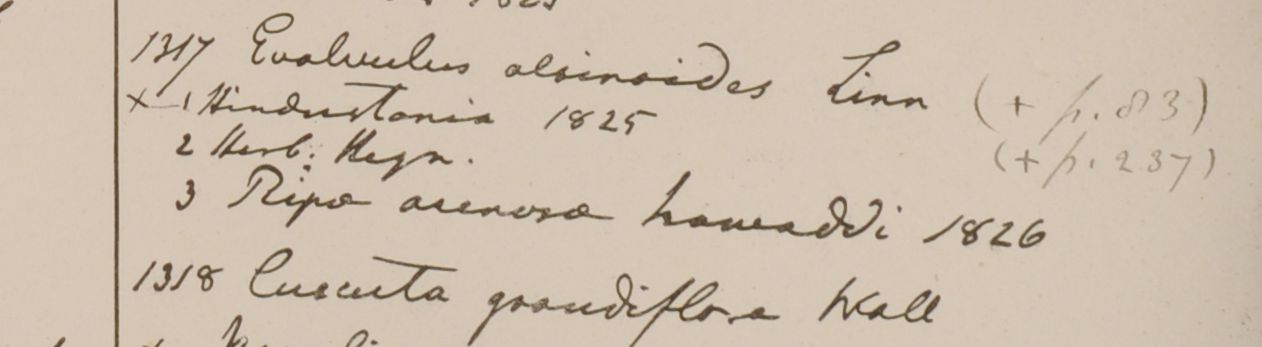 1825
1317 Evolvulus alsinoides Linn (+ p. 83)
x 1 Hindustania 1825 (+ p. 237)
2 Herb: Heyn.
3 Ripa arenosa Irawaddi 1826
1318 Cuscuta grandiflora Wall